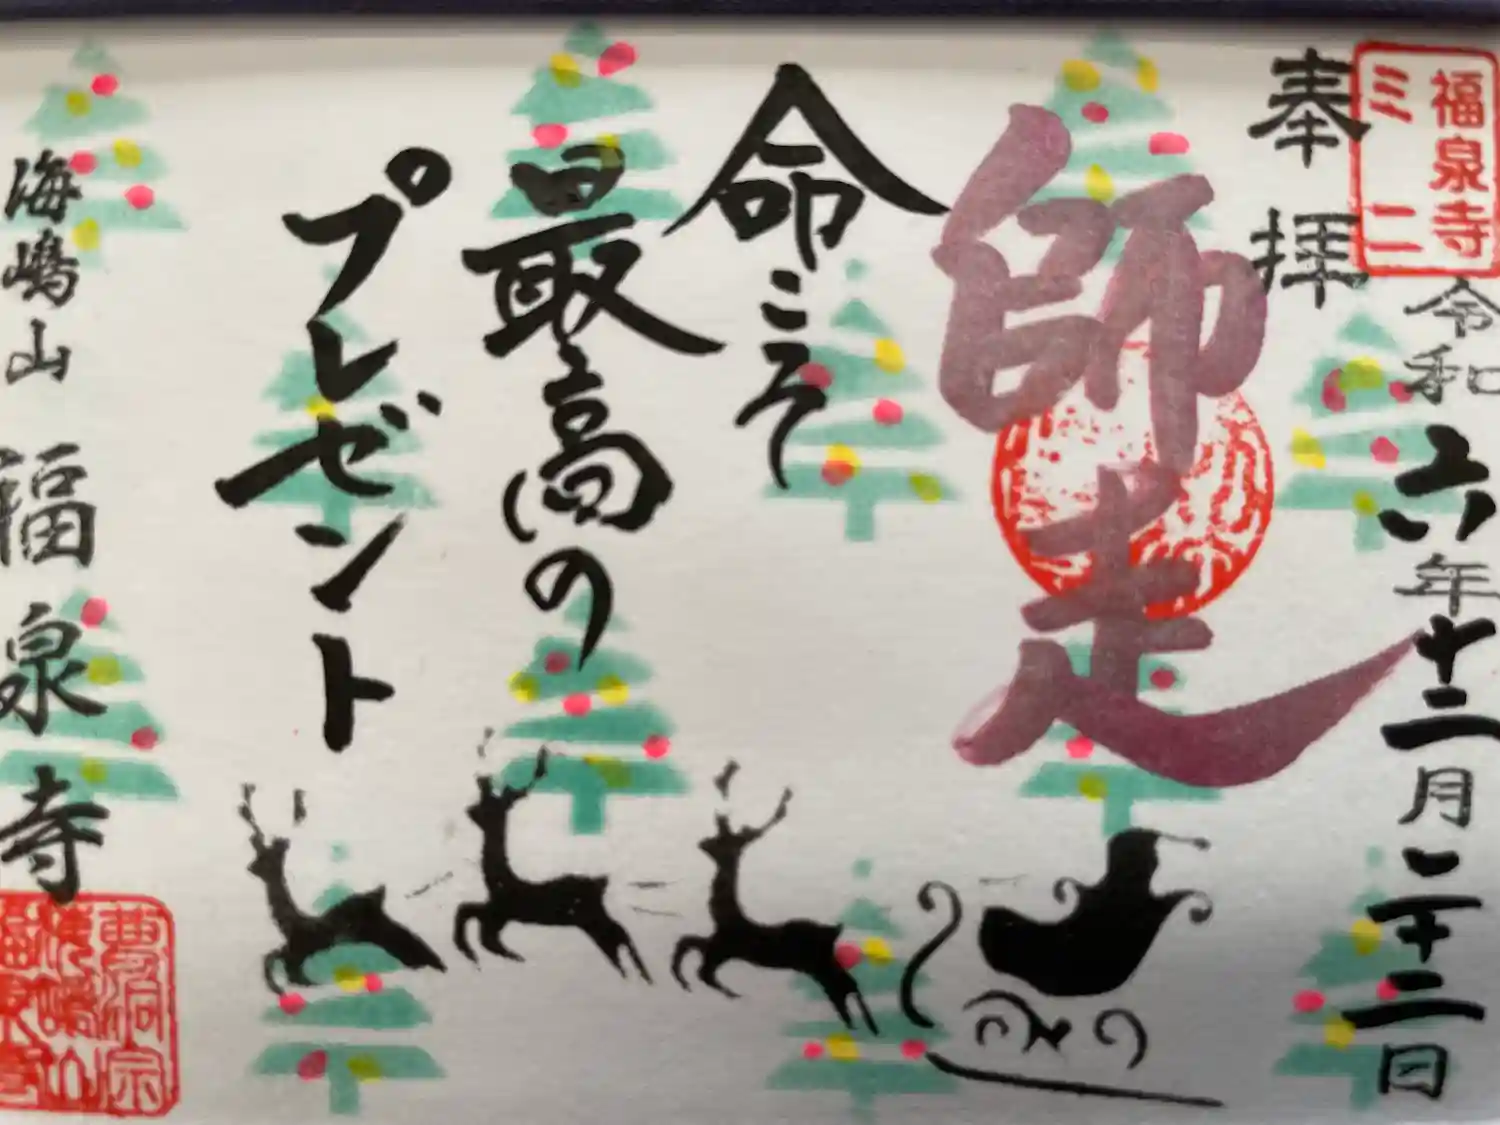 福泉寺
ミニ
奉拝
令和六年十二月二十二日
師走
命こそ
最高の
プレゼント
海嶋山 福泉寺
曹洞宗